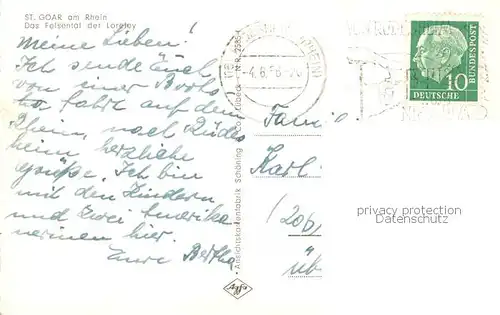 ST. GOAR am Rhein
Das Felsental der Loreley
Meine Lieben!
Ich sende Euch
von einer Boots
fahrt auf dem
Rhein, nach Rüdes
heim herzliche
Grüße. Ich bin
mit den Kindern
und zwei Amerika
nerinnen hier.
Eure Bertha
Ansichtskartenfabrik Schöning
-4.6.56-20
10
DEUTSCHE
BUNDESPOST
Famil
Karl
(20b
üb
privacy protection
Datenschutz